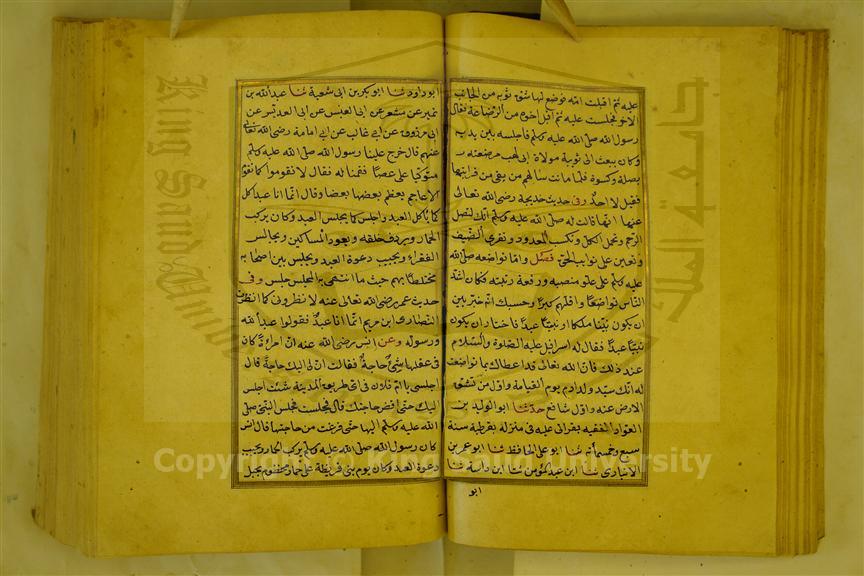 عليه ثم اقبلت امه فوضع لها شق ثوبه من الجانب
الاخر فجلست عليه ثم اقبل اخوه من الرضاعة فقام
رسول الله صلى الله عليه وسلم فاجلسه بين يديه
وكان يبعث الى ثويبة مولاة ابى لهب مرضعته
بصلة وكسوة فلما ماتت سأل من بقى من قرابتها
فقيل لا احد وفى حديث خديجة رضى الله تعالى
عنها انها قالت له صلى الله عليه وسلم انك لتصل
الرحم وتحمل الكل وتكسب المعدوم وتقرى الضيف
وتعين على نوائب الحق فصل واما تواضعه صلى الله
عليه وسلم على علو منصبه ورفعة رتبته فكان اشد
الناس تواضعا واقلهم كبرا وحسبك انه خير بين
ان يكون نبيا ملكا او نبيا عبدا فاختار ان يكون
نبيا عبدا فقال له اسرافيل عليه الصلوة والسلام
عند ذلك فان الله تعالى قد اعطاك بما تواضعت
له انك سيد ولد ادم يوم القيمة واول من تنشق
الارض عنه واول شافع حدثنا ابو الوليد بن
العواد الفقيه بقراتى عليه فى منزله بقرطبة سنة
سبع وخمسمائة ثنا ابو على الحافظ ثنا ابو عمر بن
ثنا ابن عبد المؤمن ثنا ابن داسة ثنا
ابو
ابو داود ثنا ابو بكر بن ابى شيبة ثنا عبد الله بن
نمير عن مسعر عن ابى العنبس عن ابى العدبس عن
ابى مرزوق عن ابى غالب عن ابى امامة رضى الله تعالى
عنهم قال خرج علينا رسول الله صلى الله عليه وسلم
متوكيا على عصا فقمنا له فقال لا تقوموا كما تقوم
الاعاجم يعظم بعضها بعضا وقال انما انا عبد اكل
كما يأكل العبد واجلس كما يجلس العبد وكان يركب
الحمار ويردف خلفه ويعود المساكين ويجالس
الفقراء ويجيب دعوة العبد ويجلس بين اصحابه
مختلطا بهم حيث ما انتهى به المجلس جلس وفى
حديث عمر رضى الله تعالى عنه لا تطرونى كما اطرت
النصارى ابن مريم انما انا عبد فقولوا عبد الله
ورسوله وعن انس رضى الله عنه ان امراة كان
فى عقلها شئ جاءته فقالت ان لى اليك حاجة قال
اجلسى يا ام فلان فى اى طريق المدينة شئت اجلس
اليك حتى اقضى حاجتك قال فجلست فجلس النبى صلى
الله عليه وسلم اليها حتى فرغت من حاجتها قال انس
كان رسول الله صلى الله عليه وسلم يركب الحمار ويجيب
دعوة العبد وكان يوم بنى قريظة على حمار مخطوم بحبل
جامعة الملك
King Saud
Copyright © King Saud University